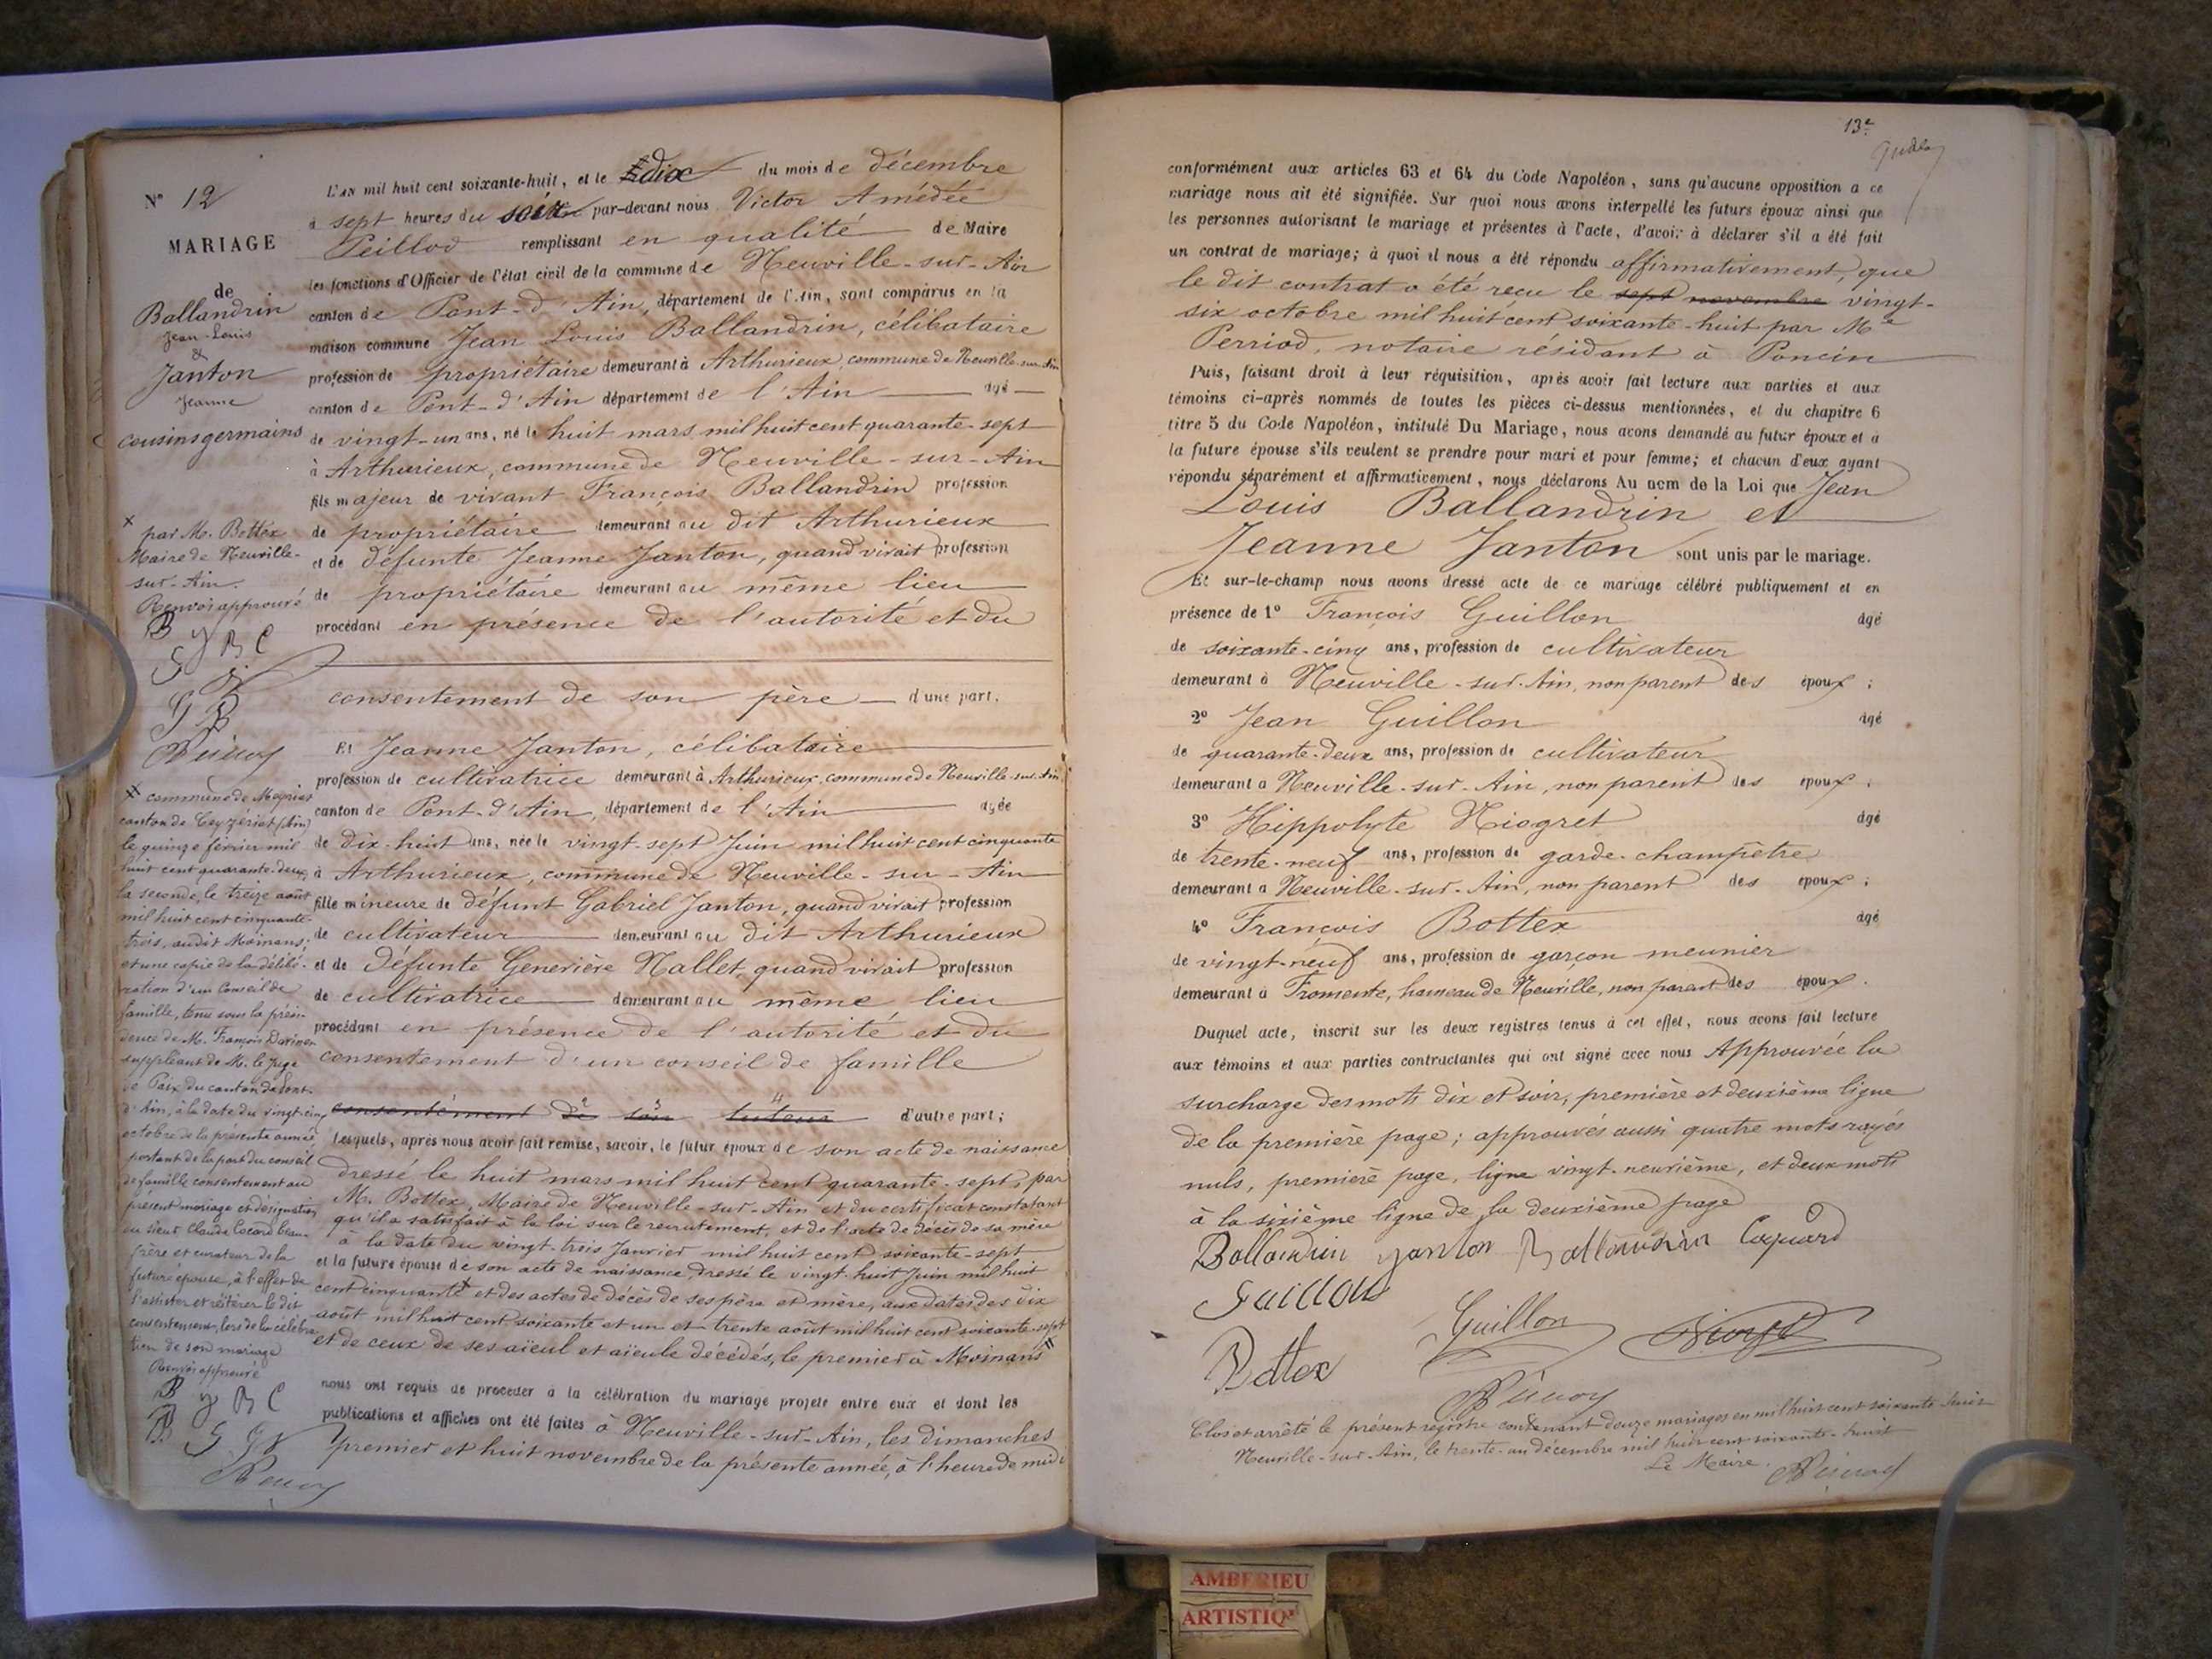 N° 12
MARIAGE
de
Ballandrin
Jean-Louis
&
Janton
Jeanne
cousins germains
x
par Mr. Bottex
Maire de Neuville-
sur-Ain.
Renvoi approuvé
B J B C
G
G B
xx commune de Meyriat
canton de Ceyzériat (Ain)
le quinze février mil
huit cent quarante-deux,
la seconde, le treize août
mil huit cent cinquante-
trois, audit Moinans;
et une copie de la délibé-
ration d'un Conseil de
famille, tenu sous la prési-
dence de M. François
suppléant de M. le Juge
de Paix du canton de Pont-
d'Ain, à la date du vingt-cinq
octobre de la présente année,
portant de la part du conseil
de famille consentement au
présent mariage et désignation
du sieur Claude Cocard beau-
frère et curateur de la
future épouse, à l'effet de
l'assister et réitérer le dit
consentement, lors de la célébra-
tion de son mariage
Renvoi approuvé
B J B C
B G G
L'AN mil huit cent soixante-huit, et le dix du mois de décembre
à sept heures du soir par-devant nous Victor Amédée
Peillod remplissant en qualité de Maire
les fonctions d'Officier de l'état civil de la commune de Neuville-sur-Ain
canton de Pont-d'Ain, département de l'Ain, sont comparus en la
maison commune Jean Louis Ballandrin, célibataire
profession de propriétaire demeurant à Arthurieux, commune de Neuville-sur-Ain
canton de Pont-d'Ain département de l'Ain âgé
de vingt-un ans, né le huit mars mil huit cent quarante-sept
à Arthurieux, commune de Neuville-sur-Ain
fils majeur de vivant François Ballandrin profession
de propriétaire demeurant au dit Arthurieux
et de défunte Jeanne Janton, quand vivait profession
de propriétaire demeurant au même lieu
procédant en présence de l'autorité et du
consentement de son père d'une part.
Et Jeanne Janton, célibataire
profession de cultivatrice demeurant à Arthurieux, commune de Neuville-sur-Ain,
canton de Pont-d'Ain, département de l'Ain âgée
de dix-huit ans, née le vingt-sept Juin mil huit cent cinquante
à Arthurieux, commune de Neuville-sur-Ain
fille mineure de défunt Gabriel Janton, quand vivait profession
de cultivateur demeurant au dit Arthurieux
et de défunte Generière Nallet, quand vivait profession
de cultivatrice demeurant au même lieu
procédant en présence de l'autorité et du
consentement d'un conseil de famille
consentement de son tuteur d'autre part;
Lesquels, après nous avoir fait remise, savoir, le futur époux de son acte de naissance
dressé le huit mars mil huit cent quarante-sept, par
Mr. Bottex, Maire de Neuville-sur-Ain et du certificat constatant
qu'il a satisfait à la loi sur le recrutement, et de l'acte de décès de sa mère
à la date du vingt-trois Janvier mil huit cent soixante-sept
et la future épouse de son acte de naissance, dressé le vingt-huit Juin mil huit
cent cinquante x et des actes de décès de ses père et mère, aux dates des dix
août mil huit cent soixante et un et trente août mil huit cent soixante-sept
et de ceux de ses aïeul et aïeule décédés, le premier à Moinans xx
nous ont requis de procéder à la célébration du mariage projeté entre eux et dont les
publications et affiches ont été faites à Neuville-sur-Ain, les dimanches
premier et huit novembre de la présente année, à l'heure de midi
13e
conformément aux articles 63 et 64 du Code Napoléon, sans qu'aucune opposition a ce
mariage nous ait été signifiée. Sur quoi nous avons interpellé les futurs époux ainsi que
les personnes autorisant le mariage et présentes à l'acte, d'avoir à déclarer s'il a été fait
un contrat de mariage; à quoi il nous a été répondu affirmativement, que
le dit contrat a été reçu le sept novembre vingt-
six octobre mil huit cent soixante-huit par Me
Perriod, notaire résidant à Poncin
Puis, faisant droit à leur réquisition, après avoir fait lecture aux parties et aux
témoins ci-après nommés de toutes les pièces ci-dessus mentionnées, et du chapitre 6
titre 5 du Code Napoléon, intitulé Du Mariage, nous avons demandé au futur époux et à
la future épouse s'ils veulent se prendre pour mari et pour femme; et chacun d'eux ayant
répondu séparément et affirmativement, nous déclarons Au nom de la Loi que Jean
Louis Ballandrin et
Jeanne Janton sont unis par le mariage.
Et sur-le-champ nous avons dressé acte de ce mariage célébré publiquement et en
présence de 1° François Guillon âgé
de soixante-cinq ans, profession de cultivateur
demeurant à Neuville-sur-Ain, non parent des époux;
2° Jean Guillon âgé
de quarante-deux ans, profession de cultivateur
demeurant a Neuville-sur-Ain, non parent des epoux;
3° Hippolyte Niogret âgé
de trente-neuf ans, profession de garde-champêtre
demeurant a Neuville-sur-Ain, non parent des epoux;
4° François Bottex âgé
de vingt-neuf ans, profession de garçon meunier
demeurant à Fromente, hameau de Neuville, non parent des époux.
Duquel acte, inscrit sur les deux registres tenus à cet effet, nous avons fait lecture
aux témoins et aux parties contractantes qui ont signé avec nous Approuvée la
surcharge des mots dix et soir, première et deuxième ligne
de la première page; approuvés aussi quatre mots rayés
nuls, première page, ligne vingt-neuvième, et deux mots
à la sixième ligne de la deuxième page
Ballandrin Janton Ballandrin Coquard
Guillon
Guillon Niogret
Bottex
Clos et arrêté le présent registre contenant douze mariages en mil huit cent soixante-huit
Neuville-sur-Ain, le trente-un décembre mil huit cent soixante-huit
Le Maire.
AMBERIEU
ARTISTIQ